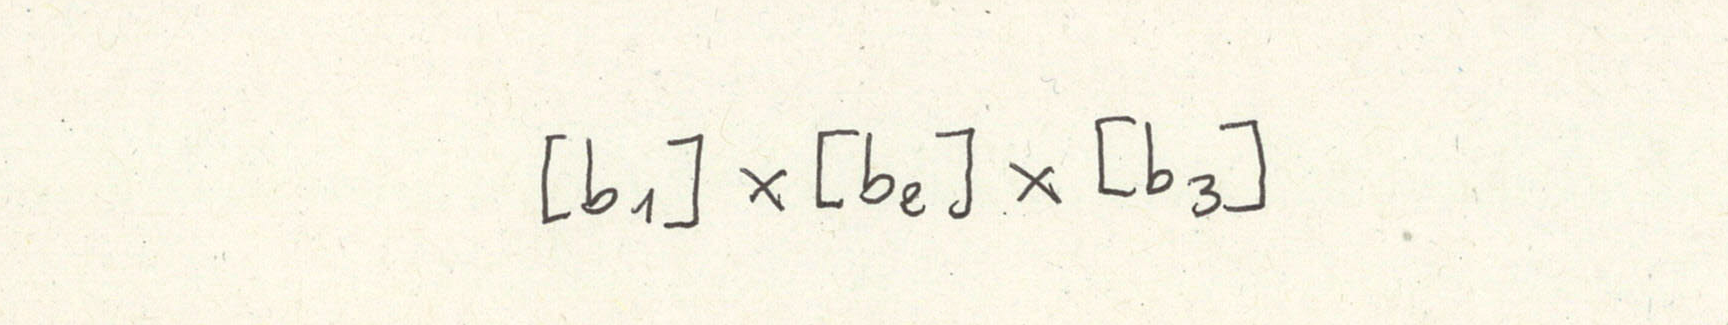 [b₁] × [bₑ] × [b₃]